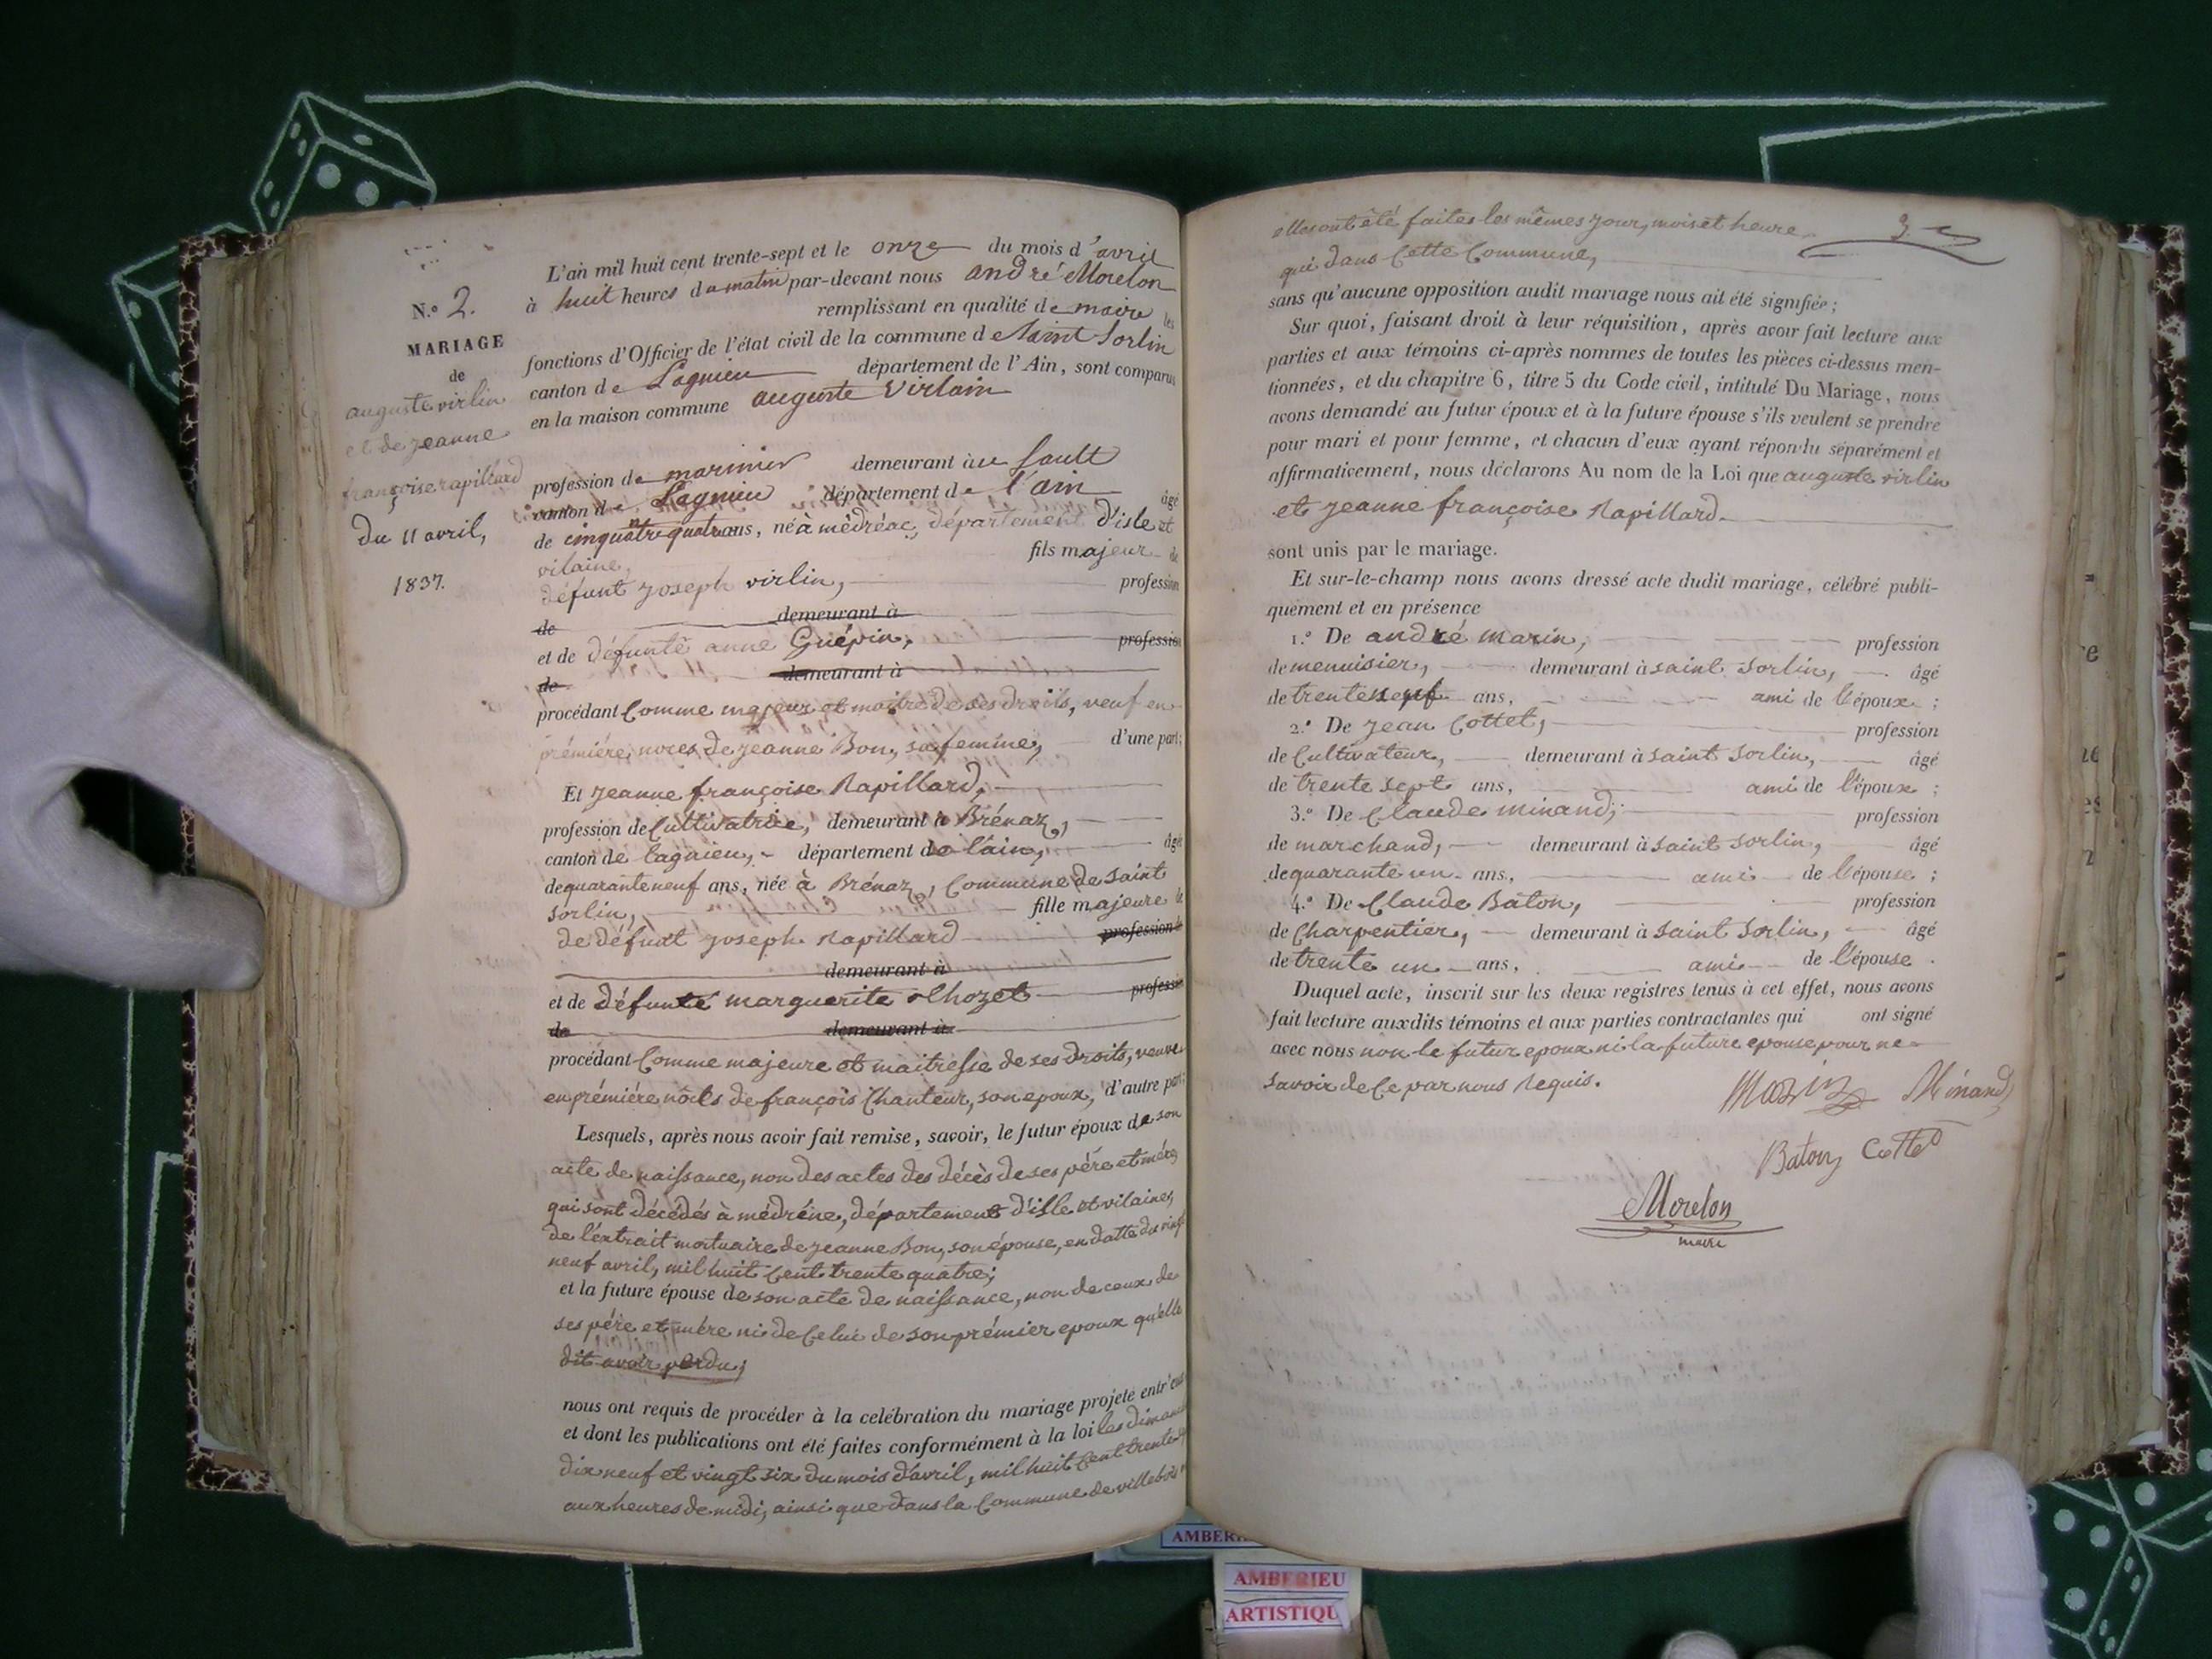 N.º 2.
MARIAGE
de
auguste virlin
et de jeanne
françoise rapillard
du 11 avril,
1837.
L'an mil huit cent trente-sept et le onze du mois d'avril
à huit heures du matin par-devant nous andré Morelon
remplissant en qualité de maire les
fonctions d'Officier de l'état civil de la commune de Saint Sorlin
canton de Lagnieu département de l'Ain, sont comparus
en la maison commune auguste Virlain
profession de marinier demeurant au Sault
canton de Lagnieu département de l'ain âgé
de cinquante quatre ans, né à médréac, département d'isle et
vilaine, fils majeur de
défunt joseph virlin, profession
de demeurant à
et de défunte anne Guépin, profession
de demeurant à
procédant Comme majeur et maitre de ses droits, veuf en
prémiére noces de jeanne Bon, sa femme, d'une part;
Et jeanne françoise Rapillard,
profession de Cultivatrice, demeurant à Brénaz,
canton de lagnieu, département de l'ain, âgé
de quarante neuf ans, née à Brénaz, Commune de Saint
Sorlin, fille majeure
de défunt joseph rapillard profession
demeurant à
et de défunte marguerite Chozet profession
de demeurant à
procédant Comme majeure et maitresse de ses droits, veuve
en prémiére nôces de françois Chanteur, son epoux, d'autre part;
Lesquels, après nous avoir fait remise, savoir, le futur époux de son
acte de naissance, non des actes des décès de ses pére et mére,
qui sont décédés à médréne, département d'ille et vilaine,
de l'extrait mortuaire de jeanne Bon, son épouse, en datte du vingt
neuf avril, mil huit Cent trente quatre;
et la future épouse de son acte de naissance, non de ceux de
ses pére et mére ni de Celui de son prémier epoux qu'elle
dit avoir perdu;
nous ont requis de procéder à la celébration du mariage projeté entr'eux
et dont les publications ont été faites conformément à la loi les dimanc
dix neuf et vingt six du mois d'avril, mil huit Cent trente
aux heures de midi, ainsi que dans la Commune de villebois
elles ont été faites les mêmes jour, mois et heure
qui dans Cette Commune,
sans qu'aucune opposition audit mariage nous ait été signifiée;
Sur quoi, faisant droit à leur réquisition, après avoir fait lecture aux
parties et aux témoins ci-après nommes de toutes les pièces ci-dessus men-
tionnées, et du chapitre 6, titre 5 du Code civil, intitulé Du Mariage, nous
avons demandé au futur époux et à la future épouse s'ils veulent se prendre
pour mari et pour femme, et chacun d'eux ayant répondu séparément et
affirmativement, nous déclarons Au nom de la Loi que auguste virlin
et jeanne françoise Rapillard.
sont unis par le mariage.
Et sur-le-champ nous avons dressé acte dudit mariage, célébré publi-
quement et en présence
1.º De andré marin, profession
de menuisier, demeurant à saint Sorlin, âgé
de trente neuf ans, ami de l'époux ;
2.º De jean Cottet, profession
de Cultivateur, demeurant à saint Sorlin, âgé
de trente sept ans, ami de l'époux ;
3.º De Claude minand, profession
de marchand, demeurant à saint Sorlin, âgé
de quarante un ans, ami de l'épouse ;
4.º De Claude Baton, profession
de Charpentier, demeurant à Saint Sorlin, âgé
de trente un ans, ami de l'épouse .
Duquel acte, inscrit sur les deux registres tenus à cet effet, nous avons
fait lecture auxdits témoins et aux parties contractantes qui ont signé
avec nous non le futur epoux ni la future epouse pour ne
savoir de Ce par nous requis.
Marin Minand
Baton Cottet
Morelon
maire
AMBERIEU
ARTISTIQU